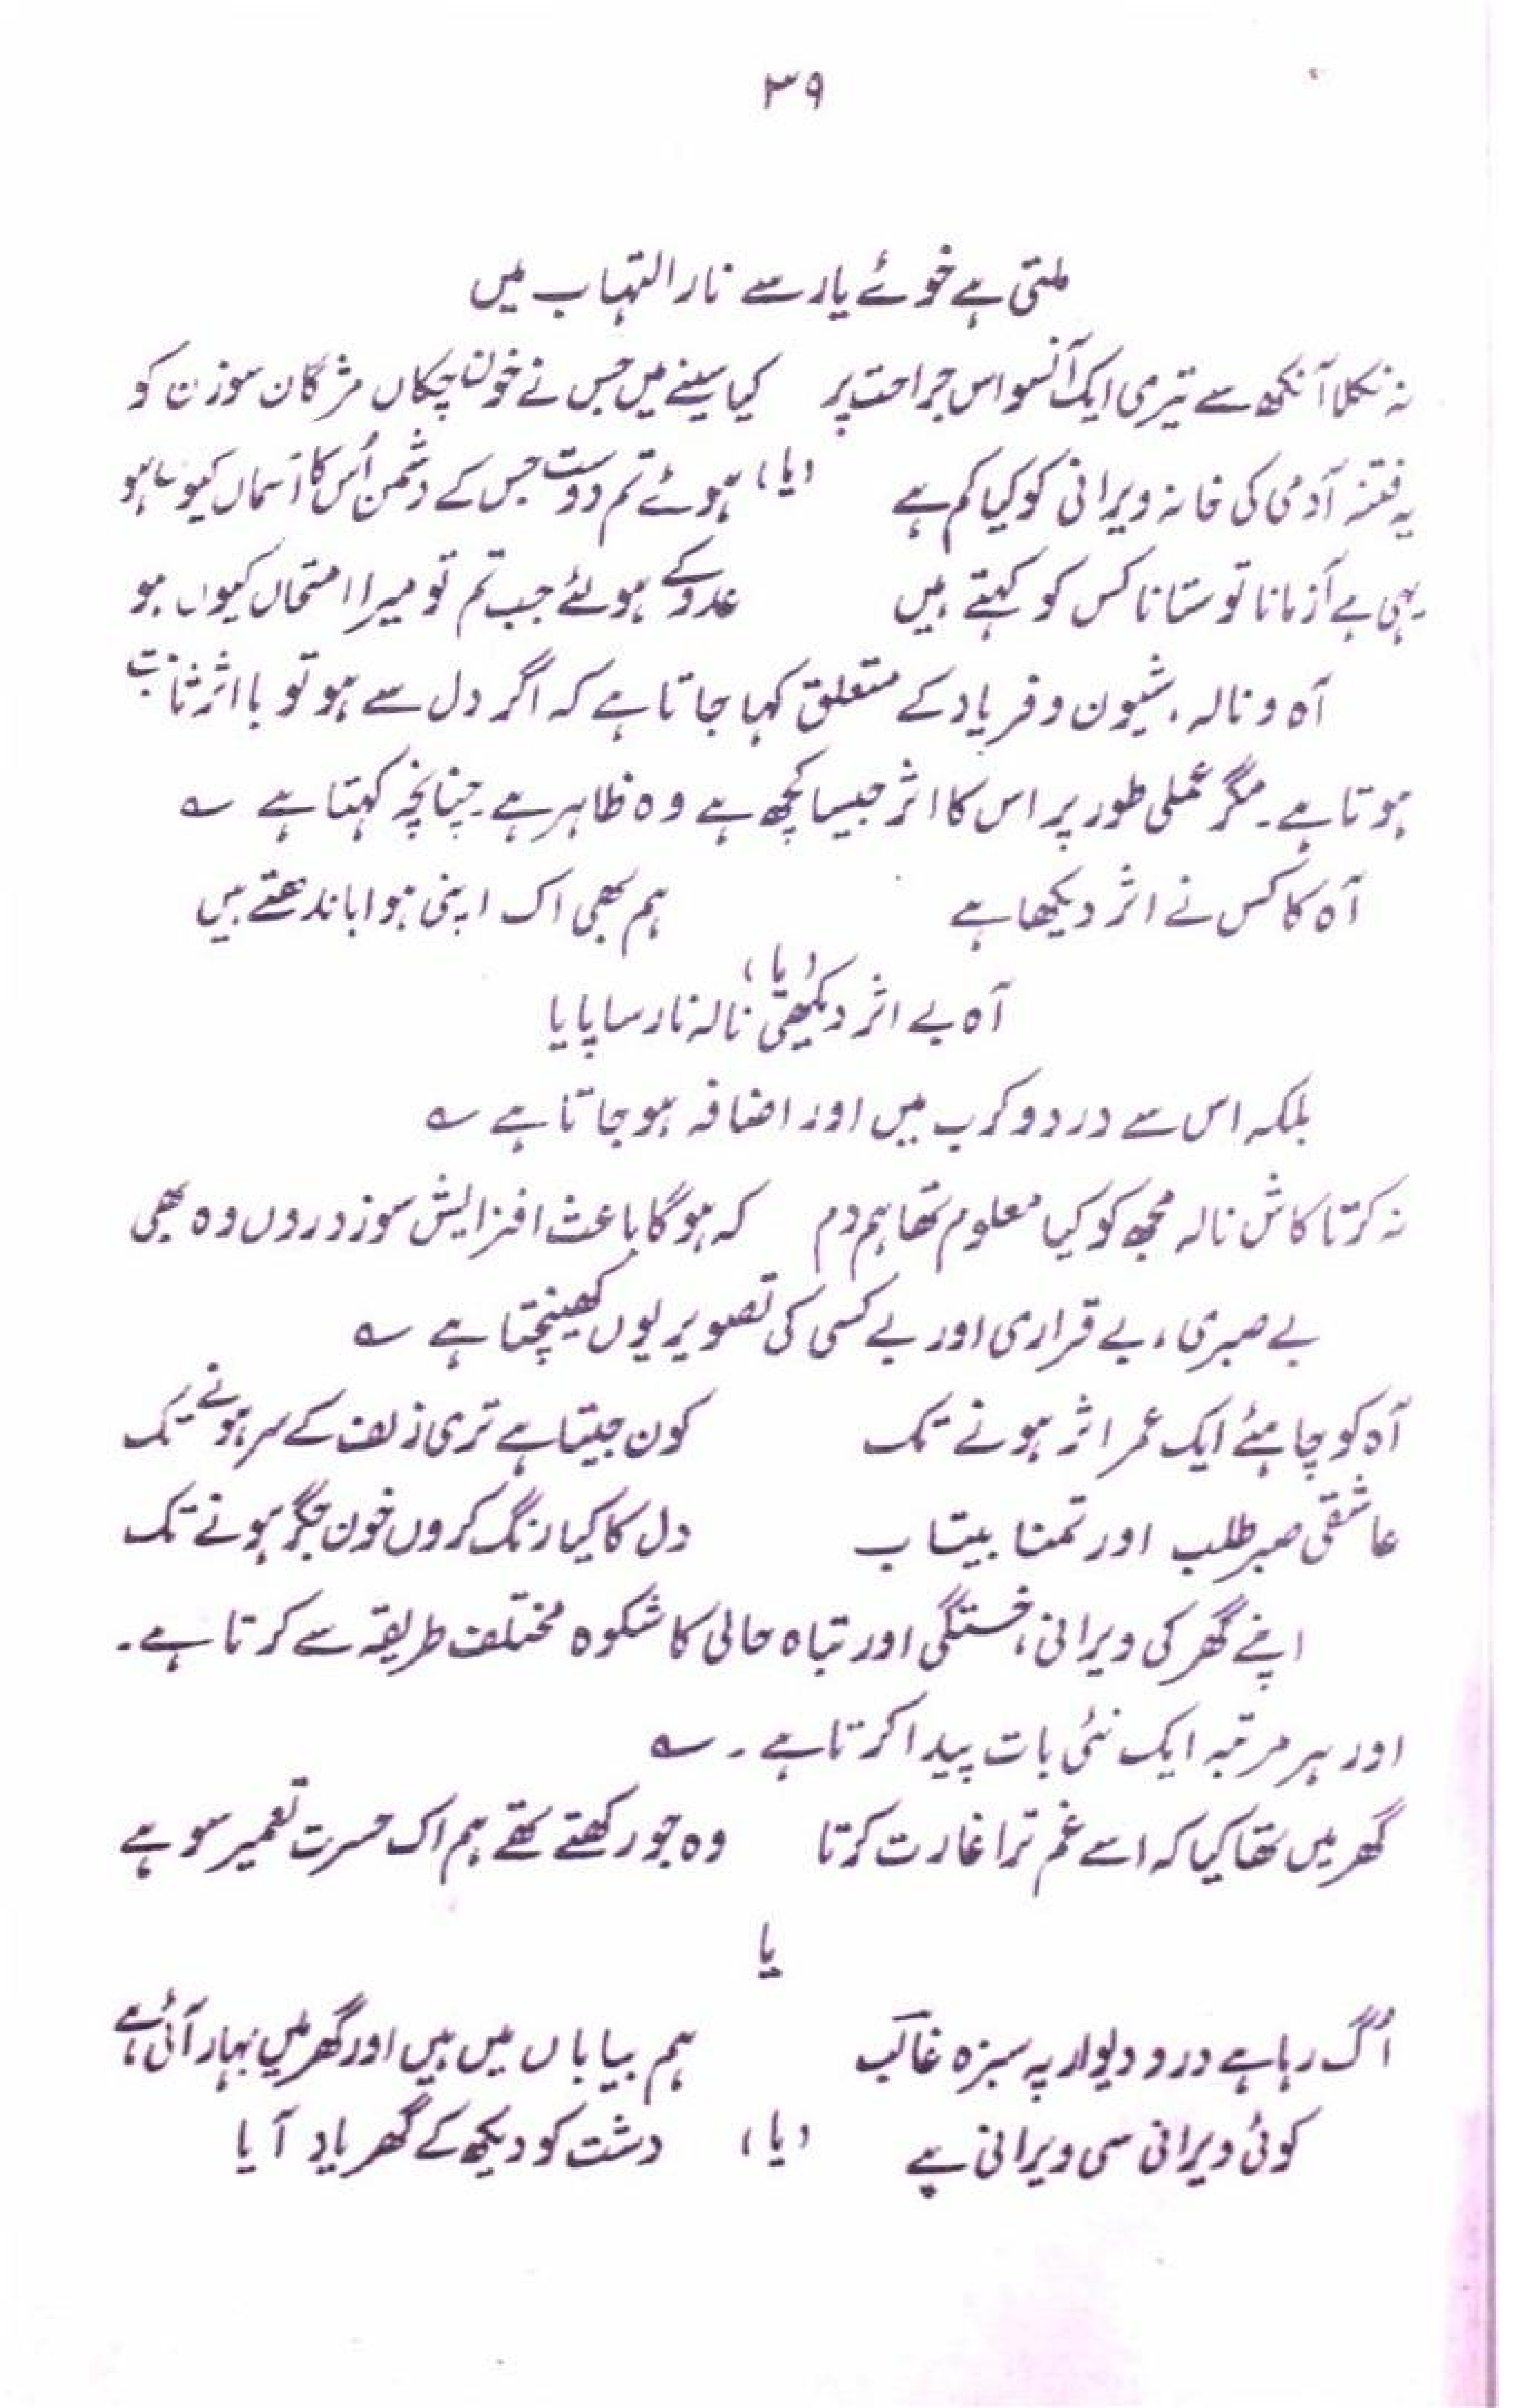 ۳۹
ملتی ہے خوئے یار سے نار التہاب میں
نہ نکلا آنکھ سے تیری ایک آنسو اس جراحت پر کیا سینے میں جس نے خونچکاں مژگان سوزن کو
یہ فتنہ آدمی کی خانہ ویرانی کو کیا کم ہے (یا) ہوئے تم دوست جس کے دشمن اُس کا آسماں کیوں ہو
یہی ہے آزمانا تو ستانا کس کو کہتے ہیں عدو کے ہولئے جب تم تو میرا امتحاں کیوں ہو
آہ و نالہ، شیون و فریاد کے متعلق کہا جاتا ہے کہ اگر دل سے ہو تو با اثر ثابت
ہوتا ہے۔ مگر عملی طور پر اس کا اثر جیسا کچھ ہے وہ ظاہر ہے۔ چنانچہ کہتا ہے ؎
آہ کا کس نے اثر دیکھا ہے ہم بھی اک اپنی ہوا باندھتے ہیں
(یا)
آہ بے اثر دیکھی نالہ نارسا پایا
بلکہ اس سے درد و کرب میں اور اضافہ ہو جاتا ہے ؎
نہ کرتا کاش نالہ مجھ کو کیا معلوم تھا ہم دم کہ ہوگا باعث افزایش سوز دروں وہ بھی
بے صبری، بے قراری اور بے کسی کی تصویر یوں کھینچتا ہے ؎
آہ کو چاہئے ایک عمر اثر ہونے تک کون جیتا ہے تری زلف کے سر ہونے تک
عاشقی صبر طلب اور تمنا بیتاب دل کا کیا رنگ کروں خون جگر ہونے تک
اپنے گھر کی ویرانی، خستگی اور تباہ حالی کا شکوہ مختلف طریقہ سے کرتا ہے۔
اور ہر مرتبہ ایک نئی بات پیدا کرتا ہے۔ ؎
گھر میں تھا کیا کہ اسے غم ترا غارت کرتا وہ جو رکھتے تھے ہم اک حسرت تعمیر سو ہے
یا
اُگ رہا ہے در و دیوار پہ سبزہ غالب ہم بیاباں میں ہیں اور گھر میں بہار آئی ہے
کوئی ویرانی سی ویرانی ہے (یا) دشت کو دیکھ کے گھر یاد آیا